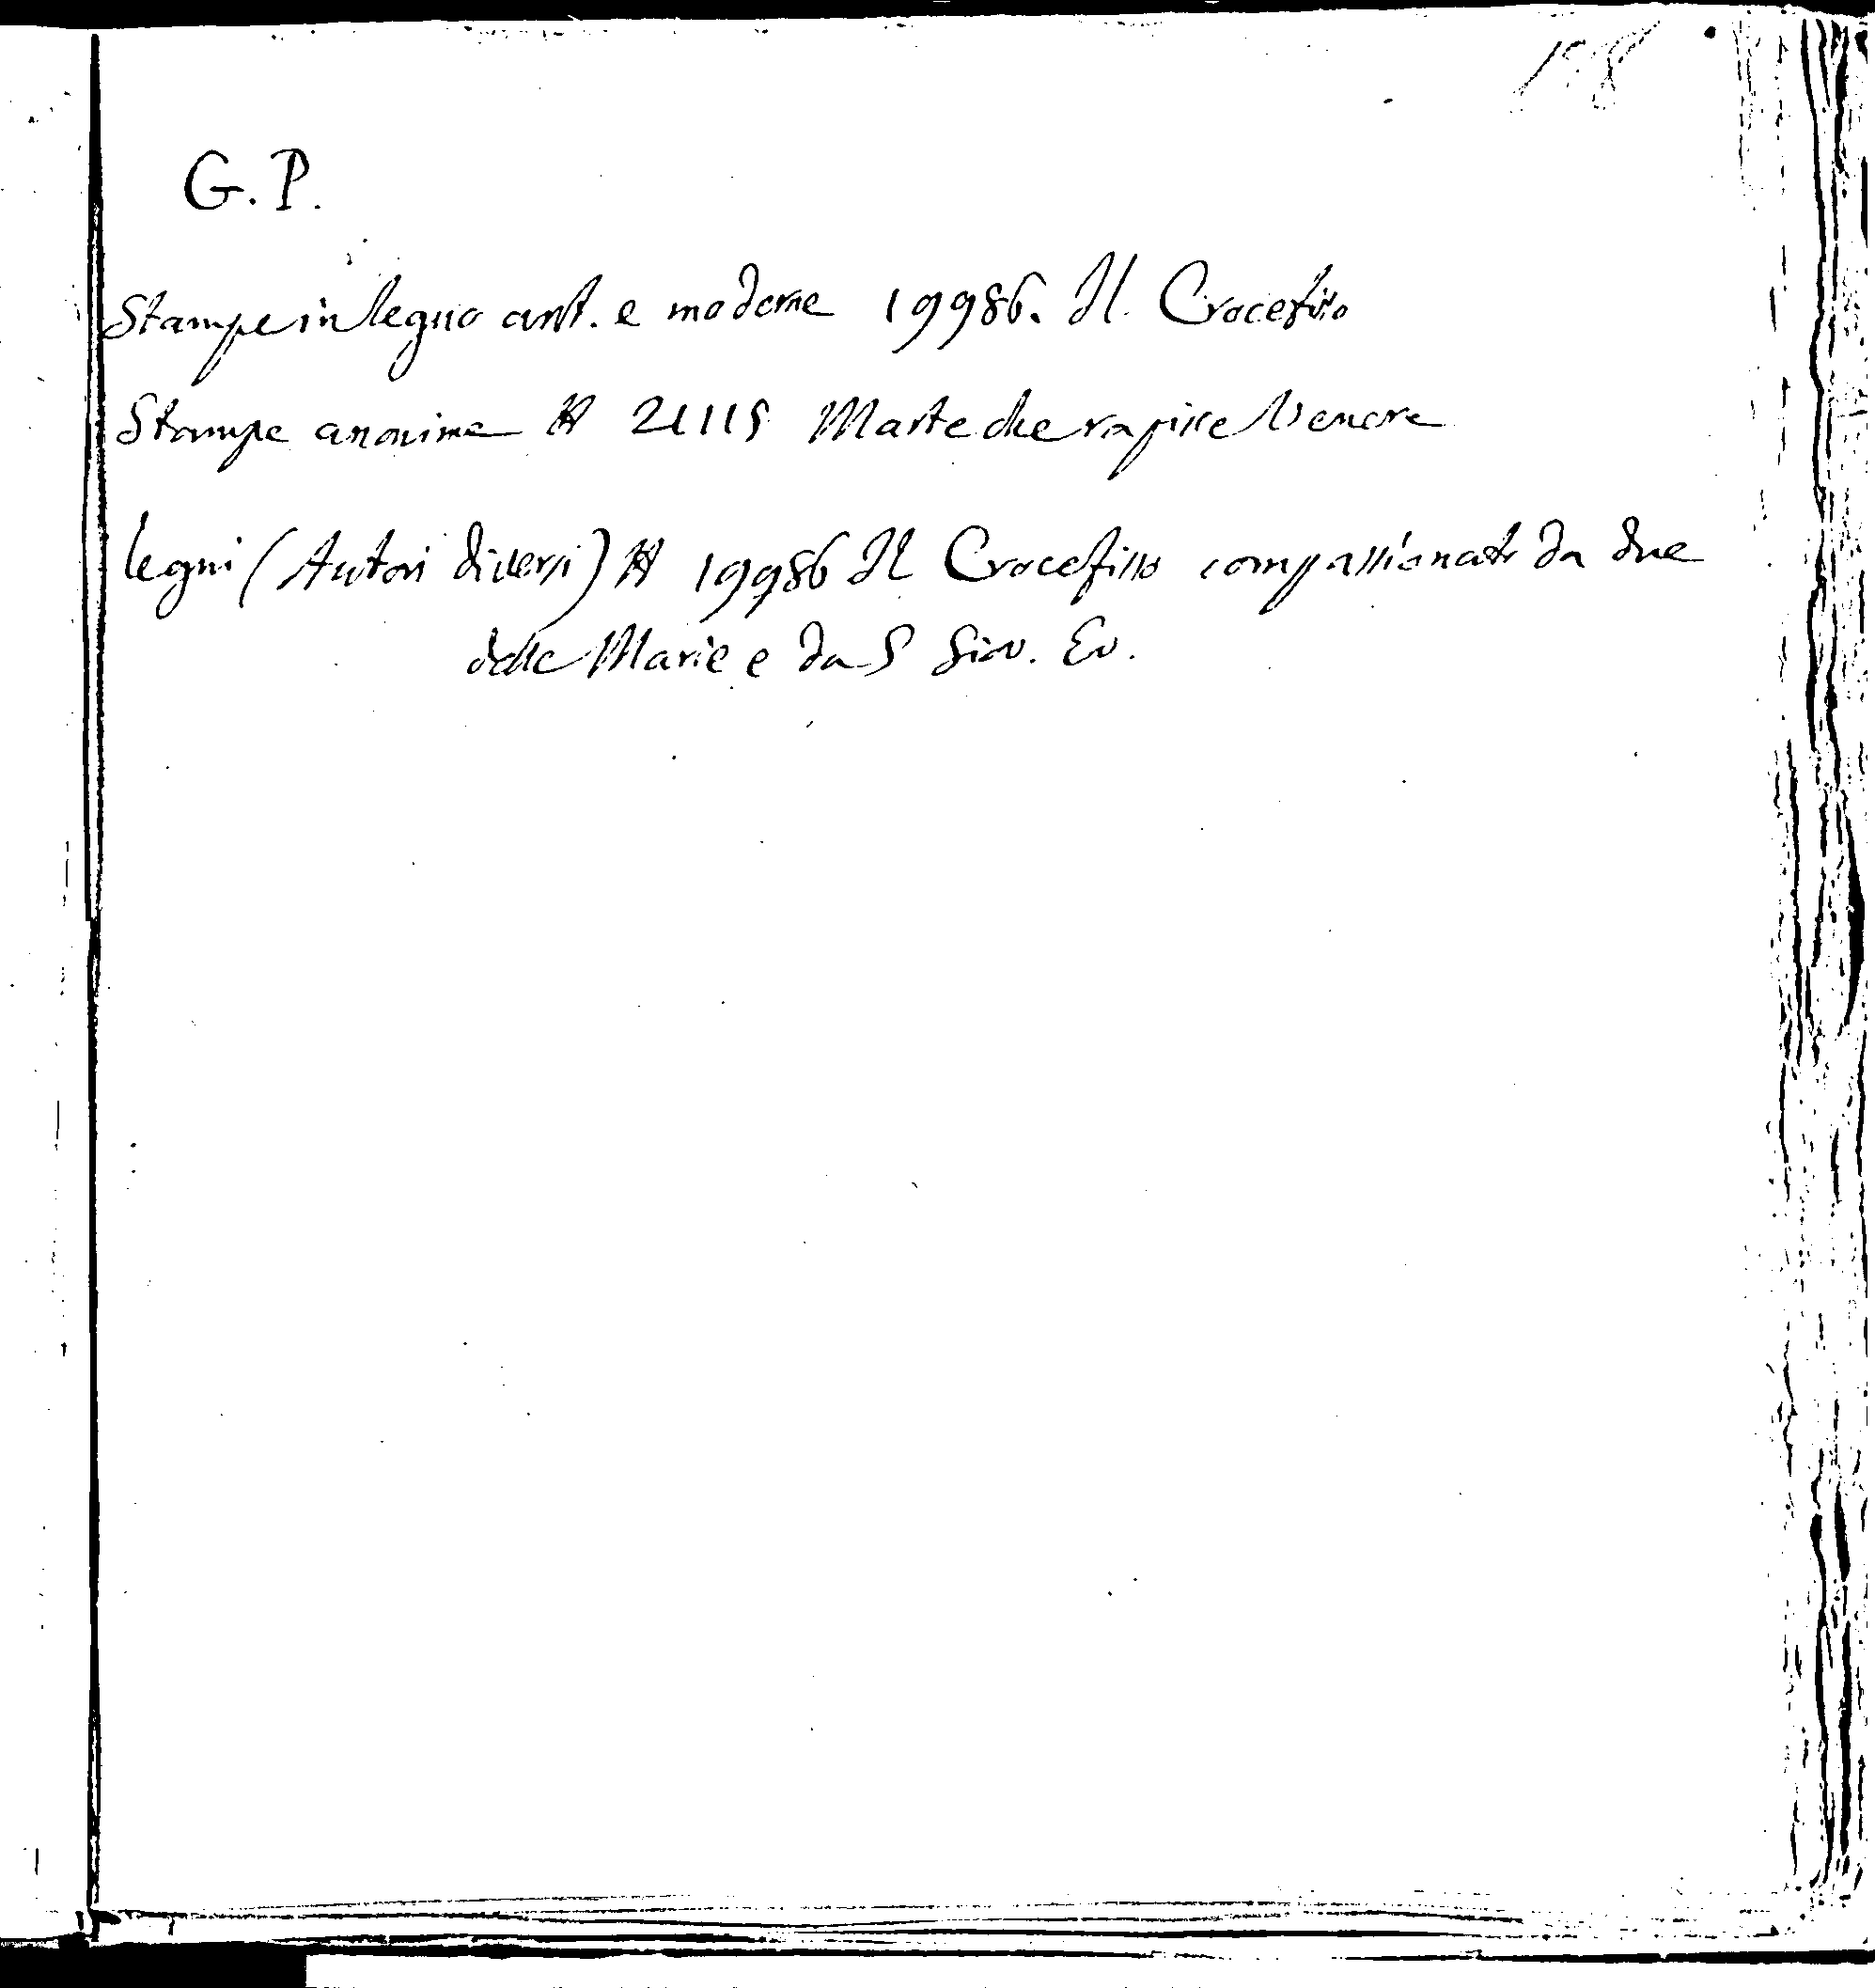 G. P.
Stampe in legno ant. e moderne 19986. Il Crocefisso
Stampe anonime 21115 Marte che rapisce Venere
legni (Autori diversi) 19986 Il Crocefisso compassionato da due
delle Marie e da S Giov. Ev.